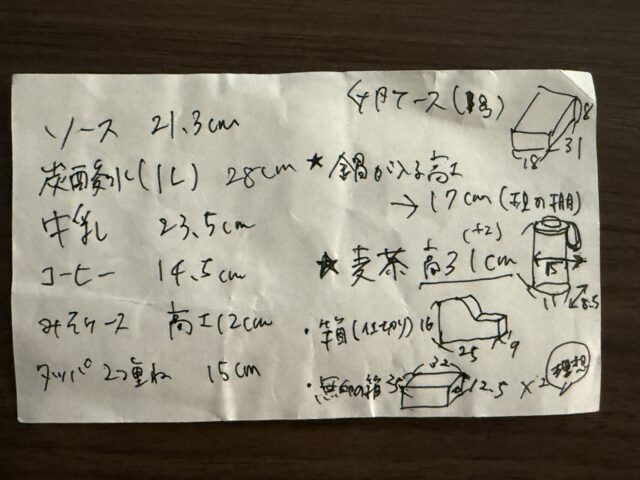 ソース 21.3cm
炭酸水(1L) 28cm
牛乳 23.5cm
コーヒー 14.5cm
みそケース 高さ12cm
タッパ2つ重ね 15cm
ケース
18 31 8
★鍋が入る高さ
→17cm(
(+2)
★麦茶 高31cm
15 11 8.5
・箱(仕切り) 16 25 9
・無印の箱 35 32 12.5 ×2 理想